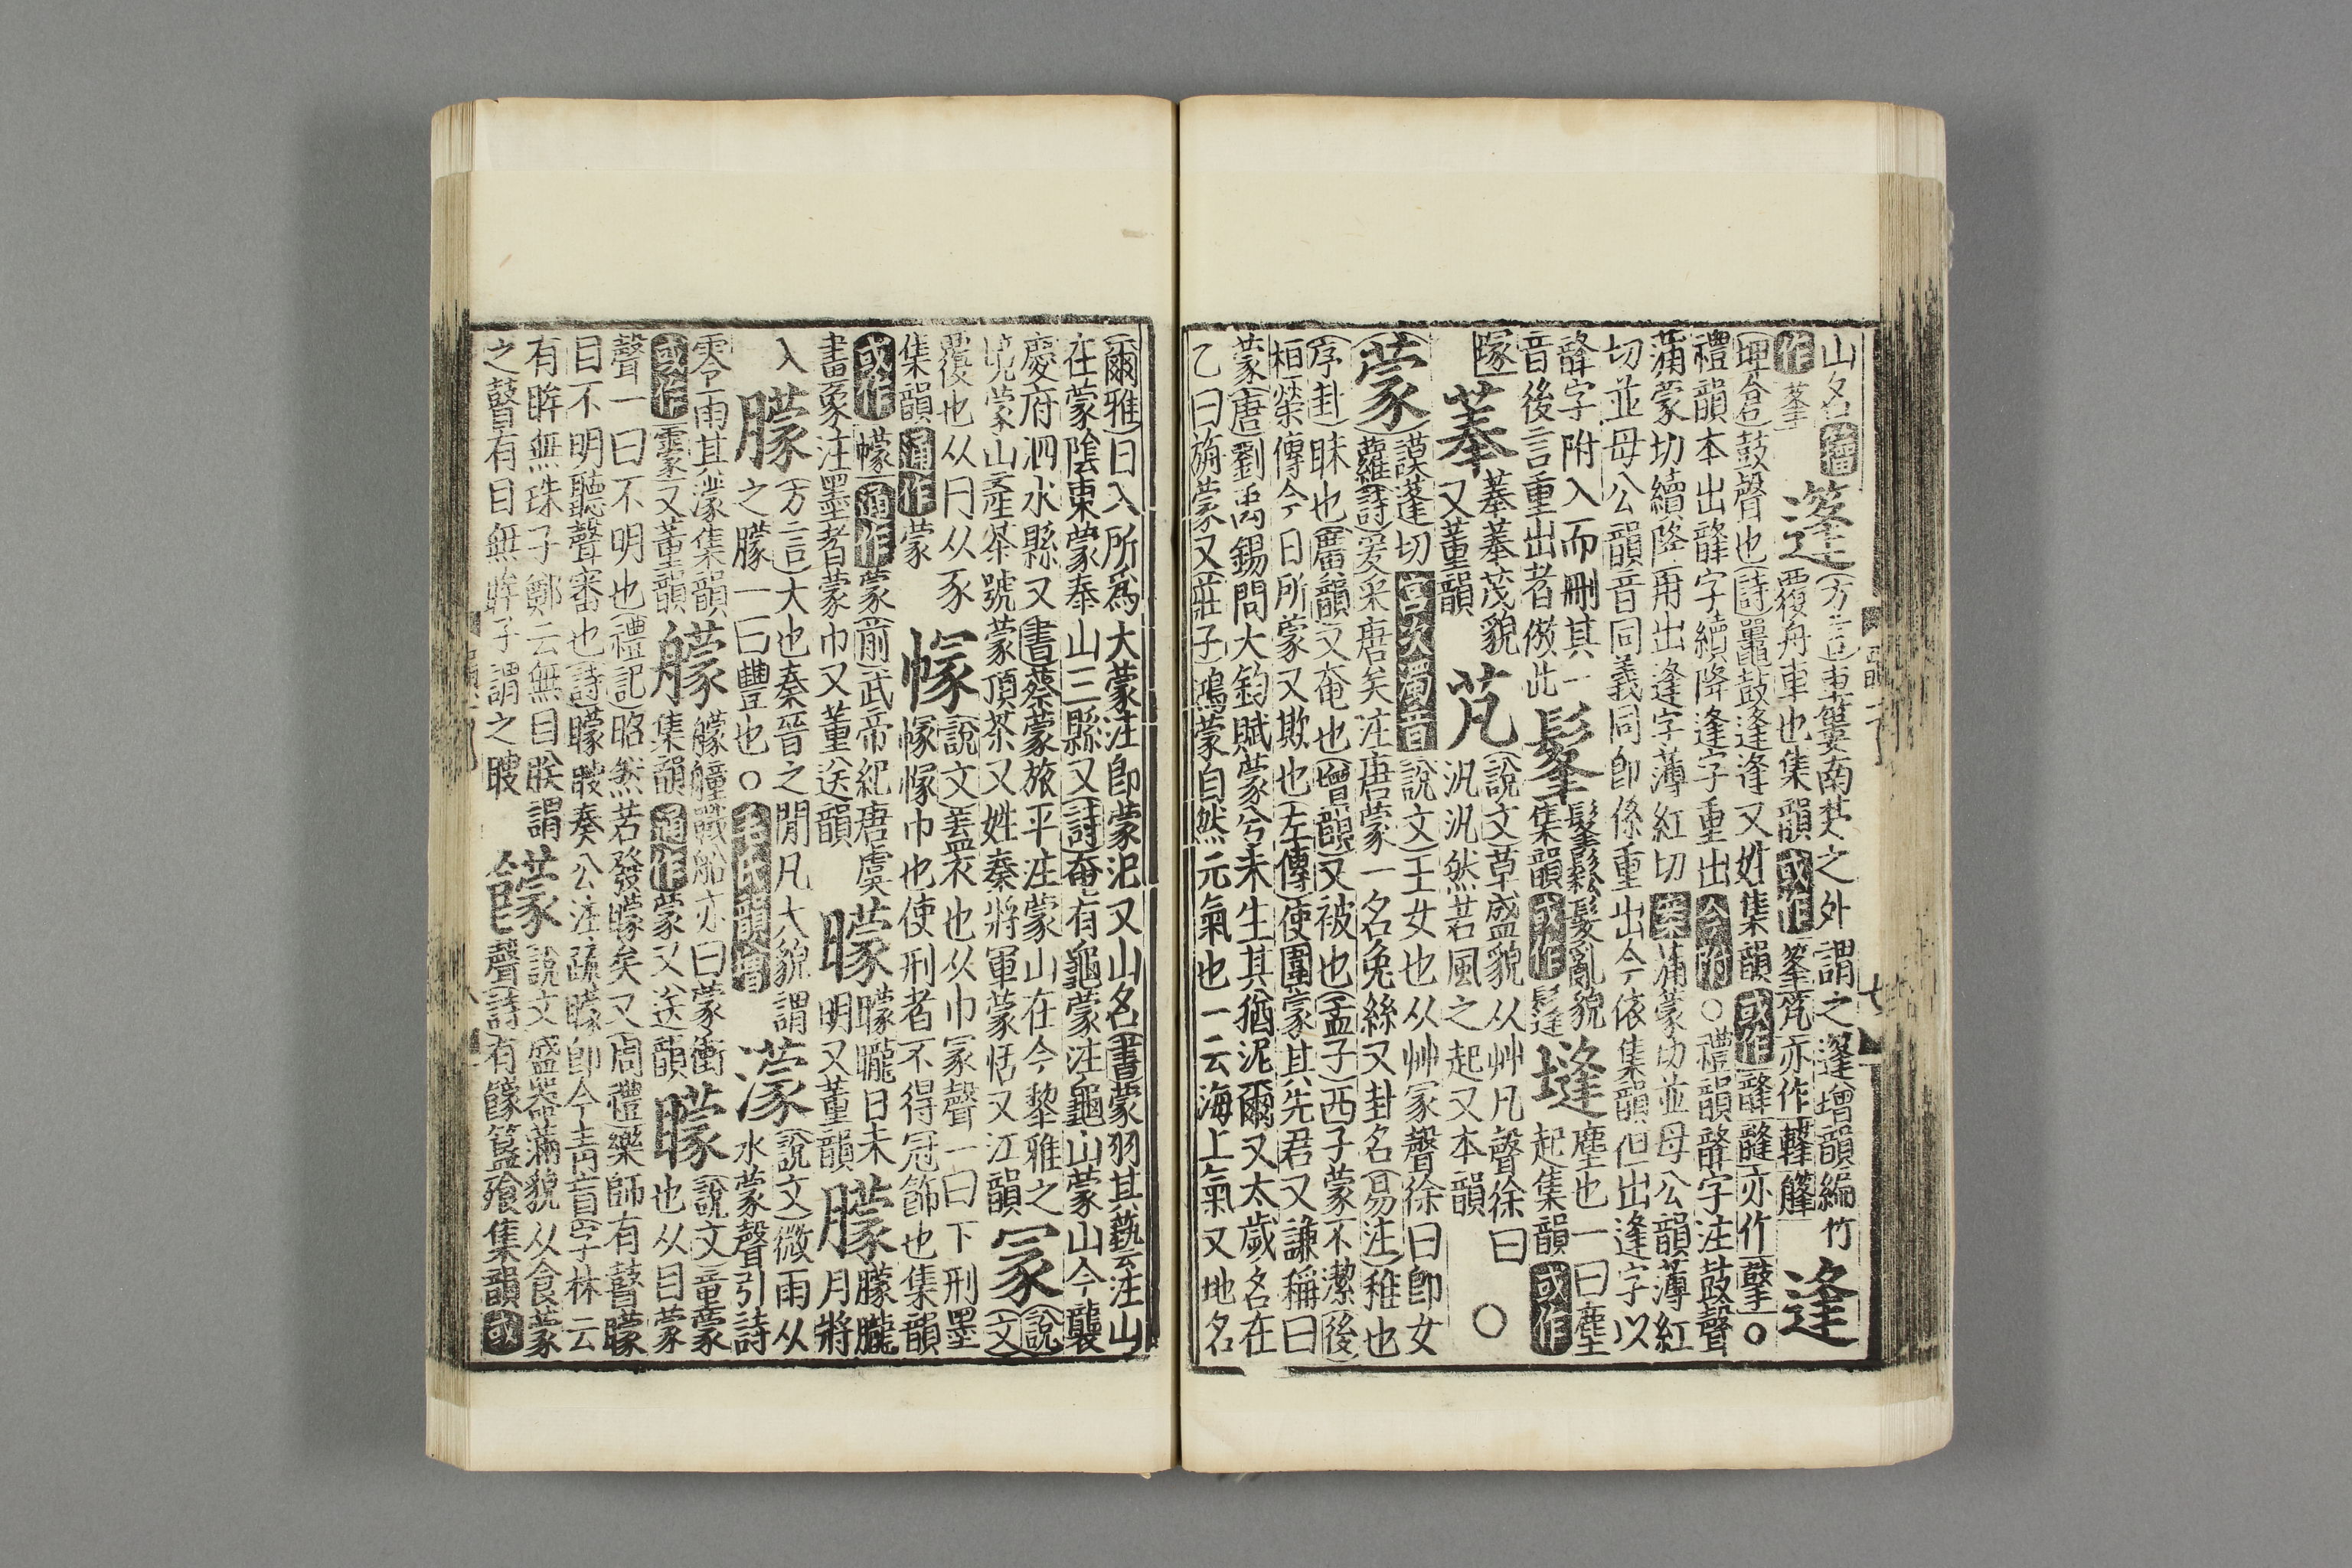 山名
作 蓬
篷 方言車簍南楚之外謂之篷增韻編竹
覆舟車也集韻或作䈴䒦亦作韼䩼
逢
埋倉鼓聲也詩鼉鼓逢逢又姓集韻或作韸韼亦作鼜○
禮韻本出韸字續降逢字重出今附○禮韻韸字注鼓聲
蒲蒙切續降用出逢字薄紅切案蒲蒙切並母公韻薄紅
切並母公韻音同義同即係重出今依集韻但出逢字以
韸字附入而刪其一
音後言重出者倣此
髼 髼鬆髮亂貌
集韻或作髼
塳 塵也一曰塵
起集韻或作
㙙
菶 菶菶茂貌
又董韻
芃 說文草盛貌从艸凡聲徐曰
汎汎然若風之起又本韻
○
蒙 謨蓬切宮次濁音說文王女也从艸冡聲徐曰即女
蘿詩爰采唐矣注唐蒙一名兔絲又卦名易注稚也
序卦昧也廣韻又奄也增韻又被也孟子西子蒙不潔後
桓榮傳今日所蒙又欺也左傳使圉蒙其先君又謙稱曰
蒙唐劉禹錫問大鈞賦蒙兮未生其猶泥爾又太歲名在
乙曰旃蒙又莊子鴻蒙自然元氣也一云海上氣又地名
爾雅曰入所為大蒙注即蒙汜又山名書蒙羽其藝注山
在蒙陰東蒙奉山三縣又詩奄有龜蒙注龜山蒙山今襲
慶府泗水縣又書蔡蒙旅平注蒙山在今黎雅之
境蒙山產茶號蒙頂茶又姓秦將軍蒙恬又江韻
冡 說文
覆也从冂从豕
集韻通作蒙
幏 說文蓋衣也从巾冡聲一曰下刑墨
幏幏巾也使刑者不得冠飾也集韻
或作幪通作蒙前武帝紀唐虞
畫象注墨者蒙巾又董送韻
曚 曚曨日未
明又董韻
朦 朦朧
月將
入
朦 方言大也秦晉之閒凡大貌謂
之朦一曰豐也○毛氏韻增
濛 說文微雨从
水蒙聲引詩
零雨其濛集韻
或作霥又董韻
艨 艨艟戰船亦曰蒙衝
集韻通作蒙又送韻
矇 說文童矇
也从目蒙
聲一曰不明也禮記昭然若發矇矣又周禮樂師有瞽矇
目不明聽聲審也詩矇瞍奏公注疏矇即今青盲字林云
有眸無珠子鄭云無目眹謂
之瞽有目無眸子謂之瞍
饛 說文盛器滿貌从食蒙
聲詩有饛簋飧集韻或